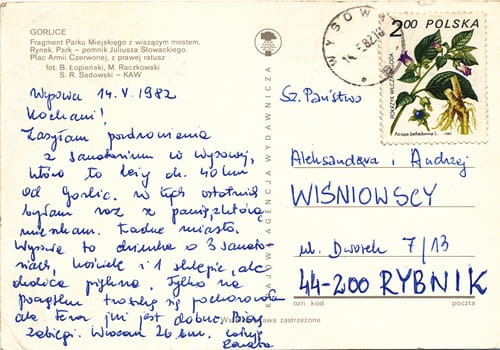 GORLICE
Fragment Parku Miejskiego z wiszącym mostem.
Rynek. Park – pomnik Juliusza Słowackiego.
Plac Armii Czerwonej, z prawej ratusz
fot. B. Łopieński, M. Raczkowski
S. R. Sadowski – KAW
Wysowa 14.V.1982
Kochani!
Zasyłam pozdrowienia
z sanatorium w Wysowej,
które to leży ok. 40 km
od Gorlic. w tych ostatnich
byłam raz z
mieszkam. Ładne miasto.
Wysowa to dziura o 3 sanato-
riach, kościele i 1 sklepie, ale
okolica piękna. Tylko na
początku trochę się pochorowałam
ale teraz już jest dobrze. Biorę
zabiegi. Wracam 26 bm. Całuję
Danuta
KRAJOWA AGENCJA WYDAWNICZA
WYSOWA
14.5.82.18
2.00 POLSKA
POKRZYK WILCZA JAGODA
Atropa belladonna L.
1980
Sz. Państwo
Aleksandra i Andrzej
WIŚNIOWSCY
ul. Dworek 7/13
44-200 RYBNIK
ozn. kod
poczta
zastrzeżone